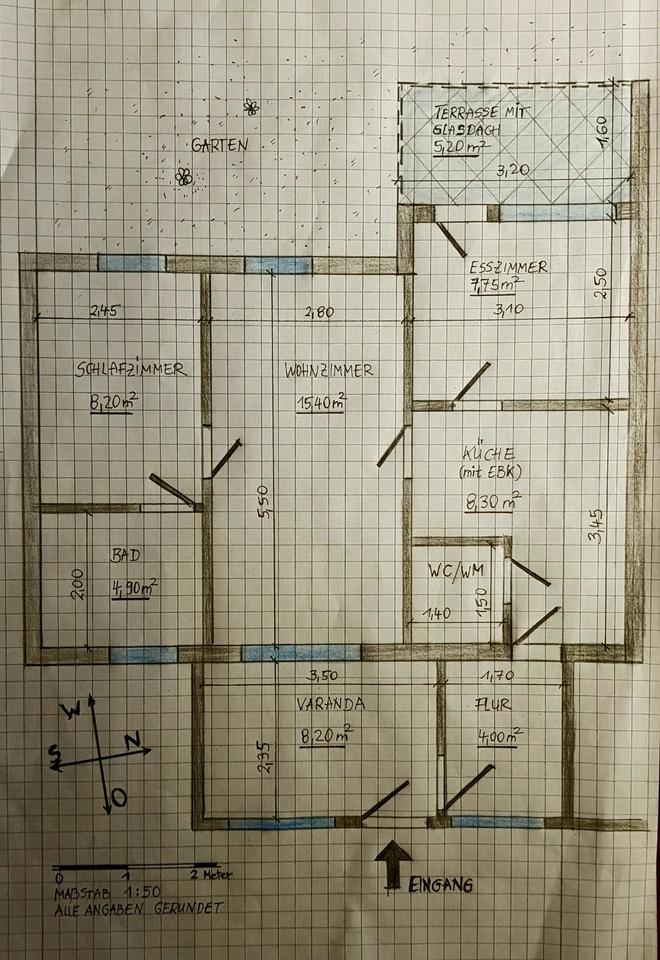 TERRASSE MIT
GLASDACH
5,20 m²
1,60
3,20
GARTEN
ESSZIMMER
7,75 m²
3,10
2,50
2,45
2,80
SCHLAFZIMMER
8,20 m²
WOHNZIMMER
15,40 m²
5,50
KÜCHE
(mit EBK)
8,30 m²
3,45
WC/WM
1,50
1,40
BAD
4,90 m²
2,00
3,50
1,70
VARANDA
8,20 m²
2,35
FLUR
4,00 m²
W
S
N
O
0 1 2 Meter
MAßSTAB 1:50
ALLE ANGABEN GERUNDET
EINGANG